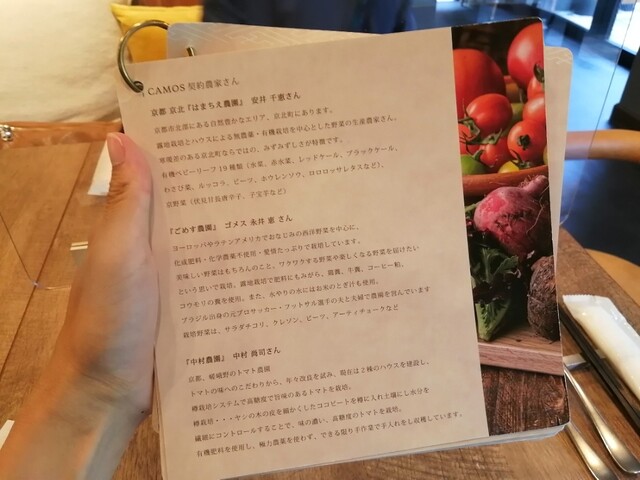 CAMOS 契約農家さん
京都 京北『はまちえ農園』 安井 千恵さん
京都市北部にある自然豊かなエリア、京北町にあります。
露地栽培とハウスによる無農薬・有機栽培を中心とした野菜の生産農家さん。
寒暖差のある京北町ならではの、みずみずしさが特徴です。
有機ベビーリーフ19種類（水菜、赤水菜、レッドケール、ブラックケール、
わさび菜、ルッコラ、ビーツ、ホウレンソウ、ロロロッサレタスなど）、
京野菜（伏見甘長唐辛子、子宝芋など）
『ごめす農園』 ゴメス 永井 恵 さん
ヨーロッパやラテンアメリカでおなじみの西洋野菜を中心に、
化成肥料・化学農薬不使用・愛情たっぷりで栽培しています。
美味しい野菜はもちろんのこと、ワクワクする野菜や楽しくなる野菜を届けたい
という思いで栽培。露地栽培で肥料にもみがら、鶏糞、牛糞、コーヒー粕、
コウモリの糞を使用。また、水やりの水にはお米のとぎ汁も使用。
ブラジル出身の元プロサッカー・フットサル選手の夫と夫婦で農園を営んでいます
栽培野菜は、サラダチコリ、クレソン、ビーツ、アーティチョークなど
『中村農園』 中村 尚司さん
京都、嵯峨野のトマト農園
トマトの味へのこだわりから、年々改良を試み、現在は2棟のハウスを建設し、
樽栽培システムで高糖度で旨味のあるトマトを栽培。
樽栽培・・・ヤシの木の皮を細かくしたココピートを樽に入れ土壌にし水分を
繊細にコントロールすることで、味の濃い、高糖度のトマトを栽培。
有機肥料を使用し、極力農薬を使わず、できる限り手作業で手入れをし収穫しています。